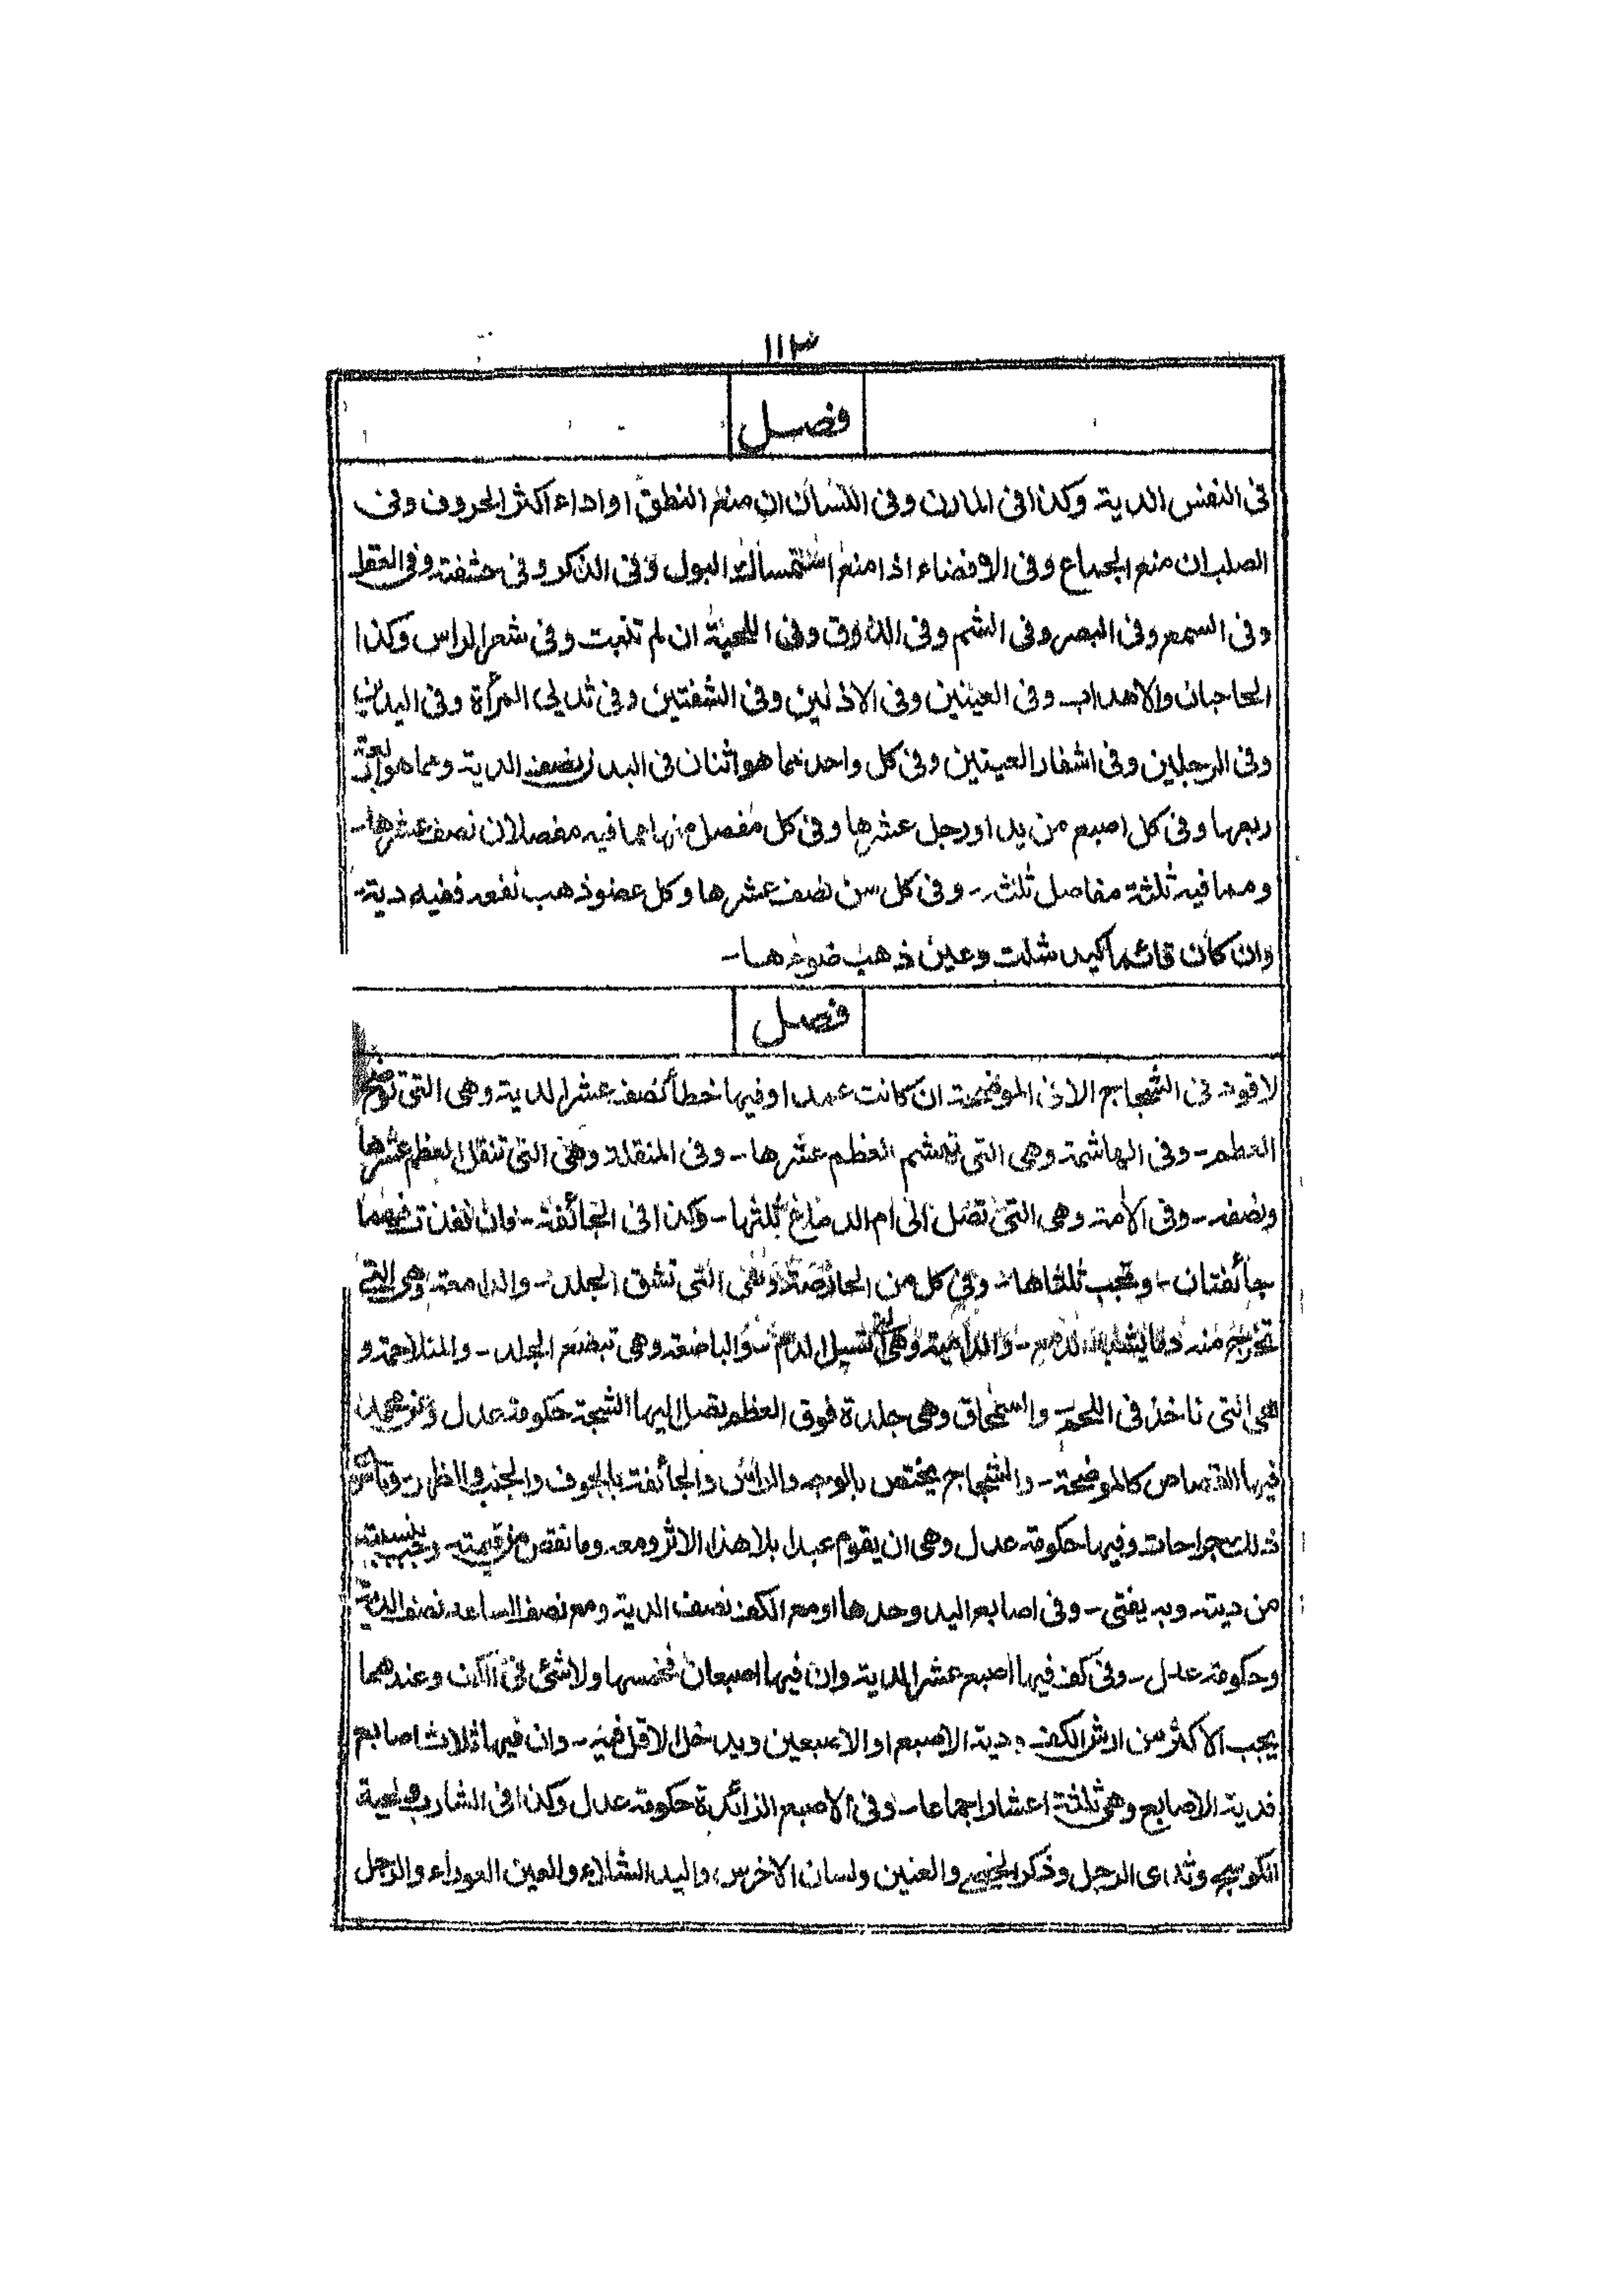 ١١٣
فصل
فى النفس الدية وكذا فى المارن وفى اللسان ان منع النطق او اداء اكثر الحروف وفى
الصلب ان منع الجماع وفى الافضاء اذا منع استمساك البول وفى الذكر وفى حشفته وفى العقل
وفى السمع وفى البصر وفى الشم وفى الذوق وفى اللحية ان لم تنبت وفى شعر الراس وكذا
الحاجبان والاهداب وفى العينين وفى الاذنين وفى الشفتين وفى ثديى المرأة وفى اليدين
وفى الرجلين وفى اشفار العينين وفى كل واحد مما هو اثنان فى البدن نصف الدية ومما هو اربعة
ربعها وفى كل اصبع من يد او رجل عشرها وفى كل مفصل منها مما فيه مفصلان نصف عشرها-
ومما فيه ثلثة مفاصل ثلثه- وفى كل سن نصف عشرها وكل عضو ذهب نفعه ففيه دية-
وان كان قائما كيد شلت وعين ذهب ضوءها-
فصل
لا قود فى الشجاج الا فى الموضحة ان كانت عمدا وفيها خطأ نصف عشر الدية وهى التى توضح
العظم- وفى الهاشمة وهى التى تهشم العظم عشرها- وفى المنقلة وهى التى تنقل العظم عشرها
ونصفه- وفى الآمة وهى التى تصل الى ام الدماغ ثلثها- وكذا فى الجائفة- وان نفذت فهما
جائفتان- وتجب ثلثاها- وفى كل من الحارصة وهى التى تشق الجلد- والدامعة وهى التى
تخرج منه ما يشبه الدمع- والدامية وهى التى تسيل الدم- والباضعة وهى تبضع الجلد- والمتلاحمة و
هى التى تاخذ فى اللحم- والسمحاق وهى جلدة فوق العظم تصل اليها الشجة حكومة عدل وعن محمد
فيها القصاص كالموضحة- والشجاج يختص بالوجه والراس والجائفة بالجوف والجنب والظهر- وما سوى
ذلك جراحات وفيها حكومة عدل وهى ان يقوم عبدا بلا هذا الاثر ومعه وما نقص من قيمته- وتجب بنسبته
من ديته- وبه يفتى- وفى اصابع اليد وحدها او مع الكف نصف الدية ومع نصف الساعد نصف الدية
وحكومة عدل- وفى كف فيها اصبع عشر الدية وان فيها اصبعان فخمسها ولا شئ فى الكف وعندهما
يجب الاكثر من ارش الكف ودية الاصبع او الاصبعين ويدخل الاقل فيه- وان فيها ثلاث اصابع
فدية الاصابع وهى ثلثة اعشار اجماعا- وفى الاصبع الزائدة حكومة عدل وكذا فى الشارب ولحية
الكوسج وثدى الرجل وذكر الخصى والعنين ولسان الاخرس واليد الشلاء والعين العوراء والرجل